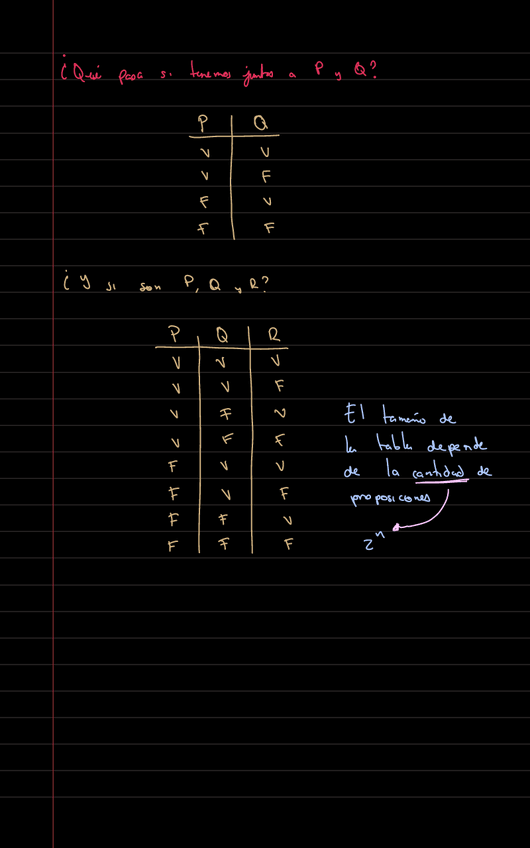 ¿Qué pasa si tenemos juntos a P y Q?
P Q
V V
V F
F V
F F
¿Y si son P, Q y R?
P Q R
V V V
V V F
V F V
V F F
F V V
F V F
F F V
F F F
El tamaño de
la tabla depende
de la cantidad de
proposiciones
2^n